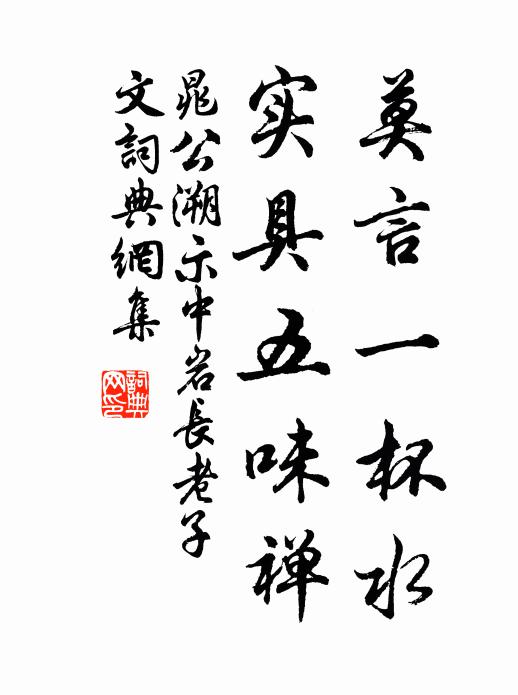 莫言一杯水
实具五味禅
晁公溯示中岩長老子
文詞典網集
詞典
网印